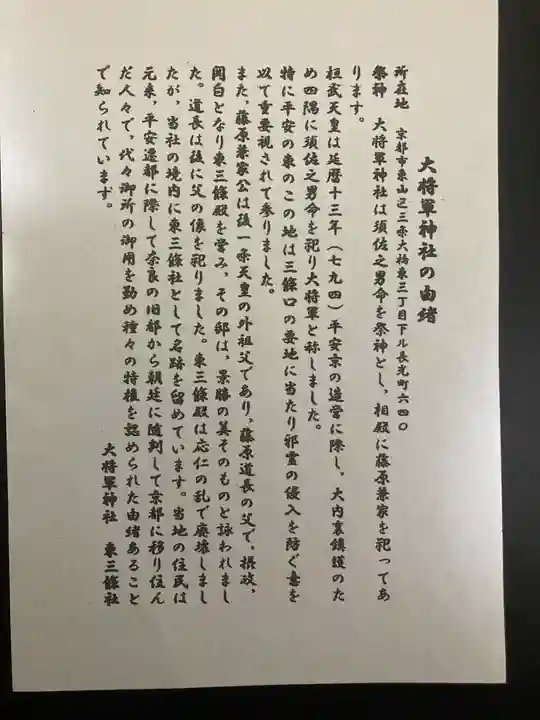 大将軍神社の由緒
所在地　京都市東山区三条大橋東三丁目下ル長光町六四〇
祭神　大将軍神社は須佐之男命を祭神とし、相殿に藤原兼家を祀ってあ
ります。
桓武天皇は延暦十三年（七九四）平安京の造営に際し、大内裏鎮護のた
め四隅に須佐之男命を祀り大将軍と称しました。
特に平安の東のこの地は三條口の要地に当たり邪霊の侵入を防ぐ意を
以て重要視されて参りました。
また、藤原兼家公は後一条天皇の外祖父であり、藤原道長の父で、摂政、
関白となり東三條殿を営み、その邸は、景勝の美そのものと詠われまし
た。道長は後に父の懐を祀りました。東三條殿は応仁の乱で廃墟しまし
たが、当社の境内に東三條社として名跡を留めています。当地の住民は
元来、平安遷都に際して奈良の旧都から朝廷に随判して京都に移り住ん
だ人々で、代々御所の御用を勤め種々の特権を認められた由緒あること
で知られています。
大将軍神社　東三條社